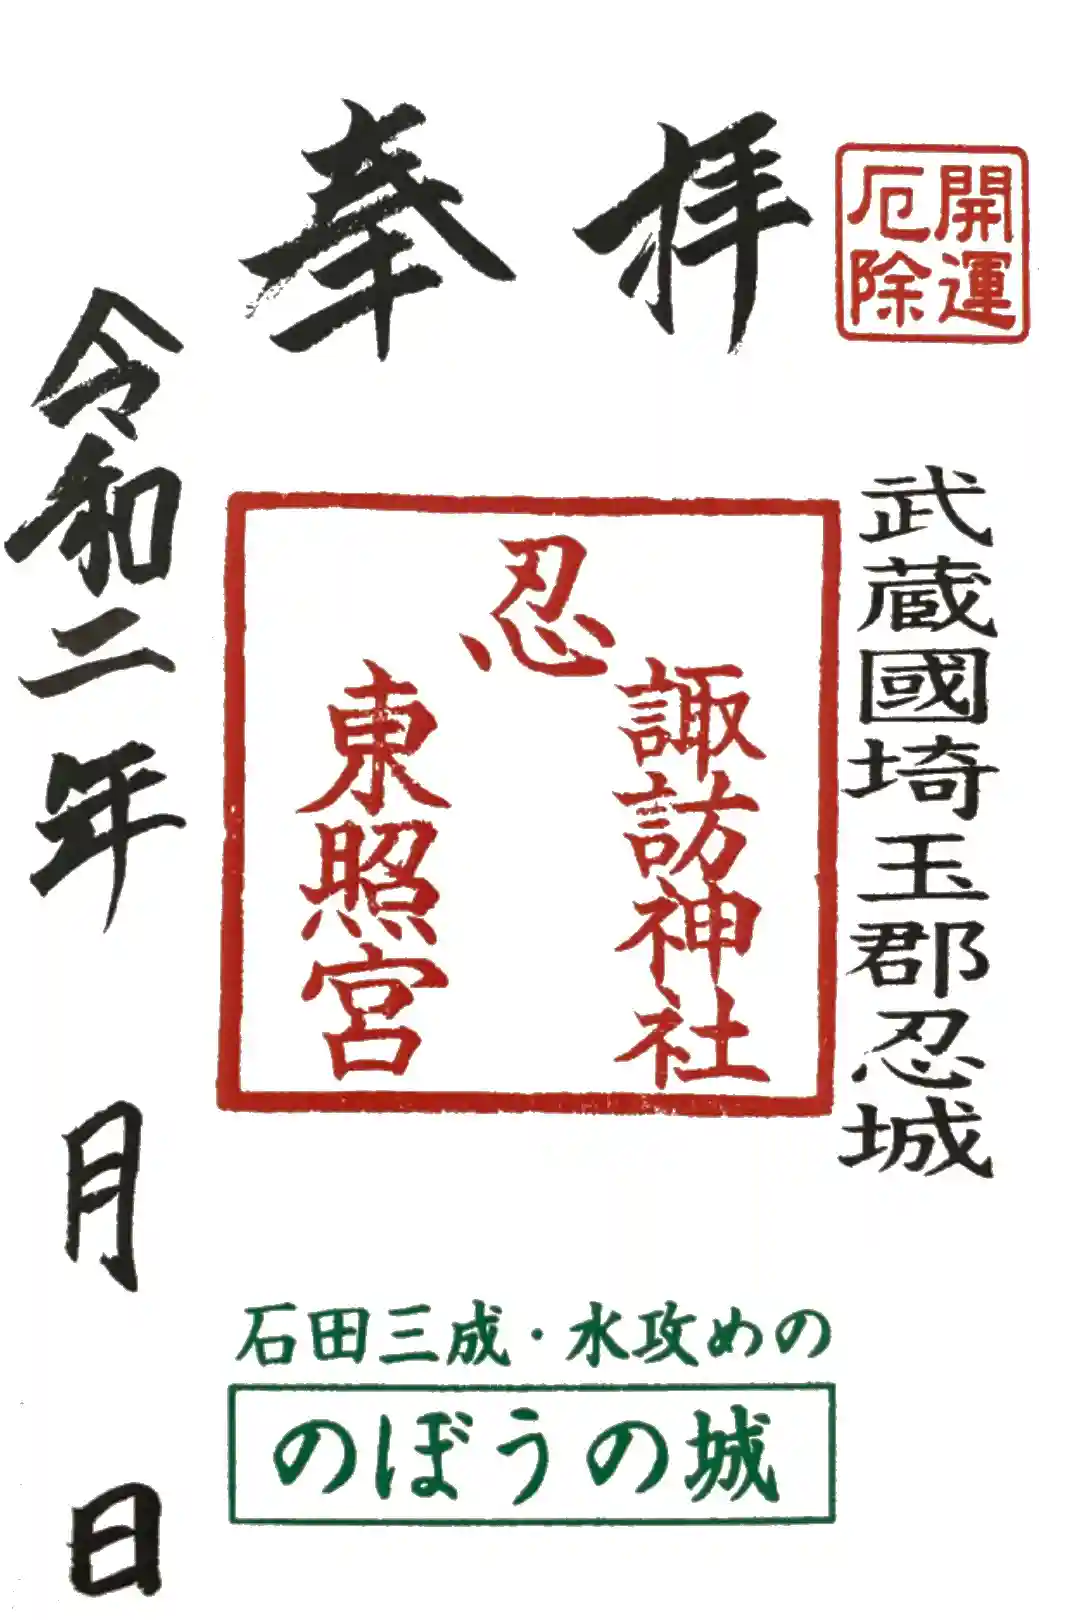 奉拝
開運
厄除
武蔵國埼玉郡忍城
忍
諏訪神社
東照宮
令和二年 月 日
石田三成・水攻めの
のぼうの城